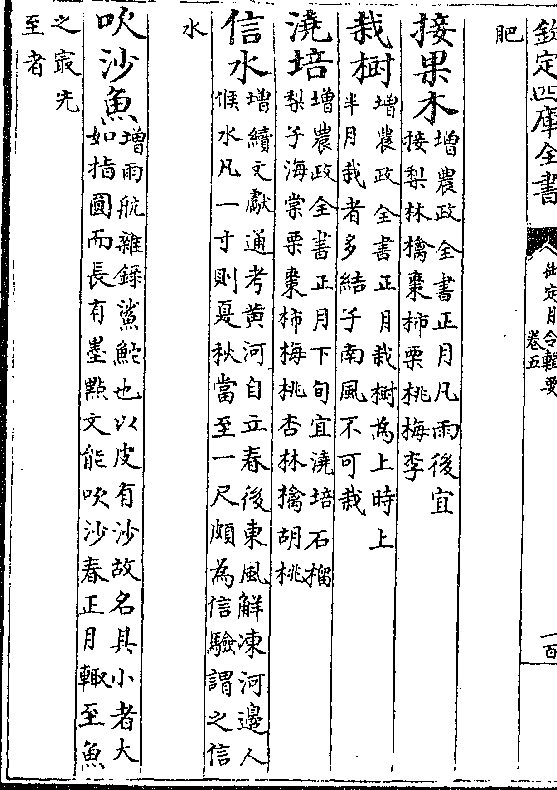 欽定四庫全書
御定月令輯要
卷五
一百
肥
接果木
增農政全書正月凡雨後宜
接梨林檎棗柿栗桃梅李
栽樹
增農政全書正月栽樹為上時上
半月栽者多結子南風不可栽
澆培
增農政全書正月下旬宜澆培石榴
梨子海棠栗棗柿梅桃杏林檎胡桃
信水
增續文獻通考黄河自立春後東風解凍河邊人
候水凡一寸則夏秋當至一尺頗為信驗謂之信
水
吹沙魚
增雨航雜錄鯊鮀也以皮有沙故名其小者大
如指圓而長有墨點文能吹沙春正月輙至魚
之冣先
至者